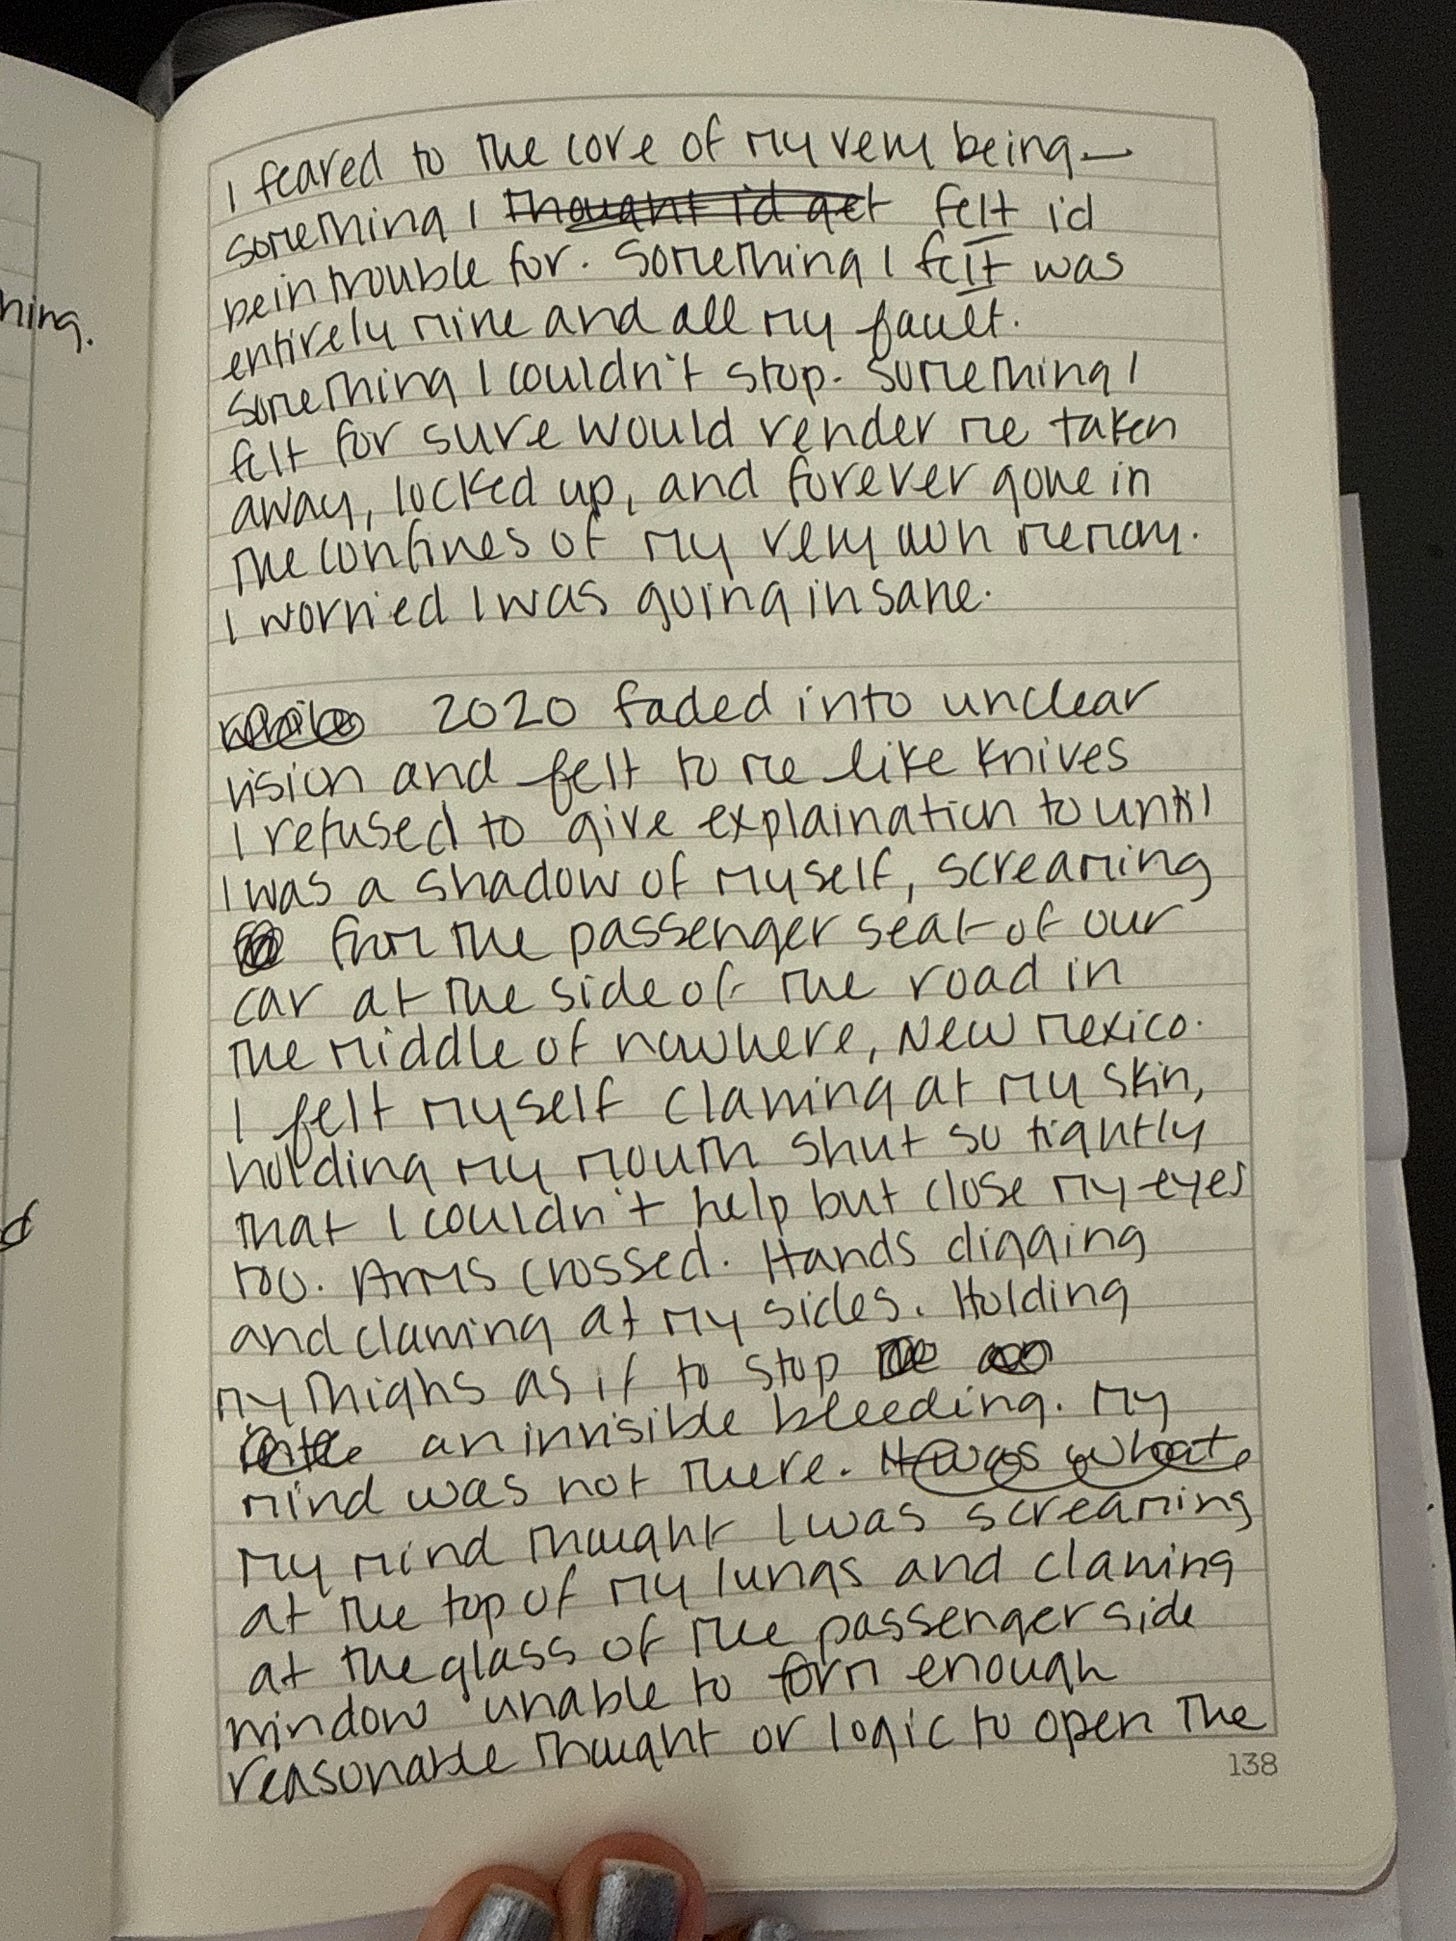 ning.
I feared to the core of my very being—
something I thought i'd get felt i'd
be in trouble for. Something I felt was
entirely mine and all my fault.
Something I couldn't stop. Something I
felt for sure would render me taken
away, locked up, and forever gone in
the confines of my very own memory.
I worried I was going insane.
while 2020 faded into unclear
vision and felt to me like knives
I refused to give explaination to until
I was a shadow of myself, screaming
from the passenger seat of our
car at the side of the road in
the middle of nowhere, New Mexico.
I felt myself clawing at my skin,
holding my mouth shut so tightly
that I couldn't help but close my eyes
too. Arms crossed. Hands digging
and clawing at my sides. Holding
my thighs as if to stop
an invisible bleeding. My
mind was not there. It was what
my mind thought I was screaming
at the top of my lungs and clawing
at the glass of the passenger side
window unable to form enough
reasonable thought or logic to open the
138